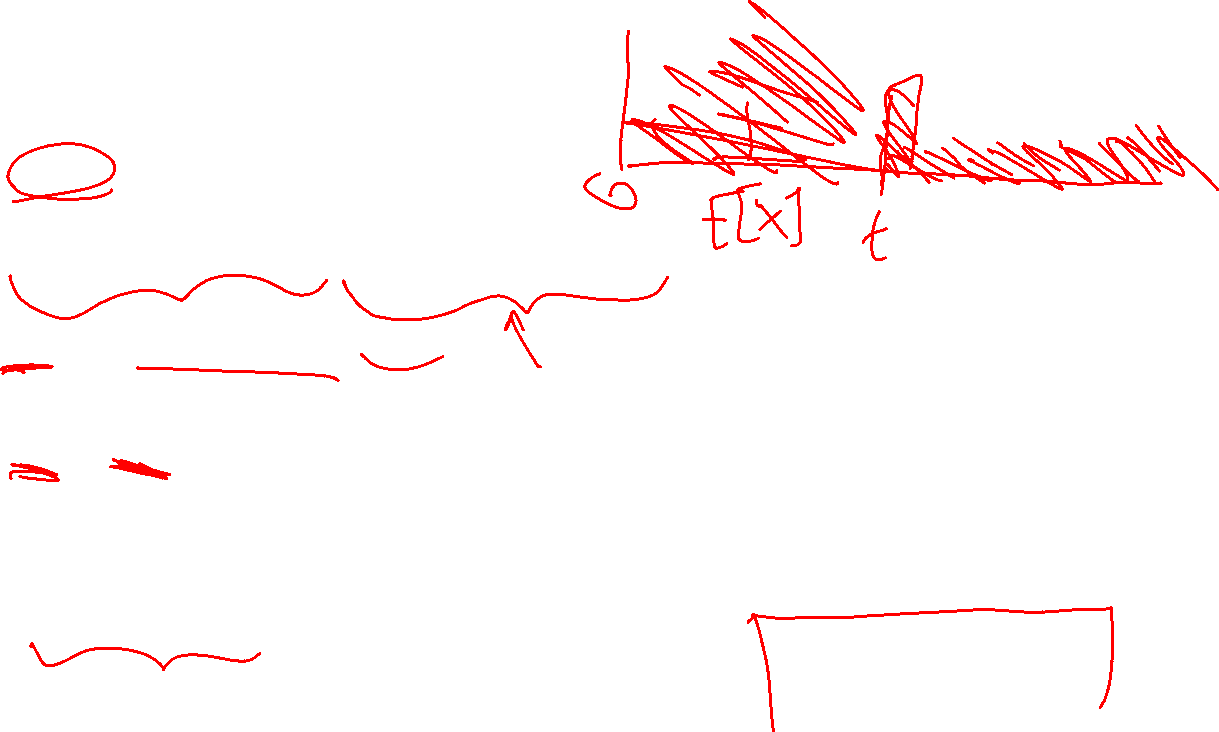 0
E[X] t